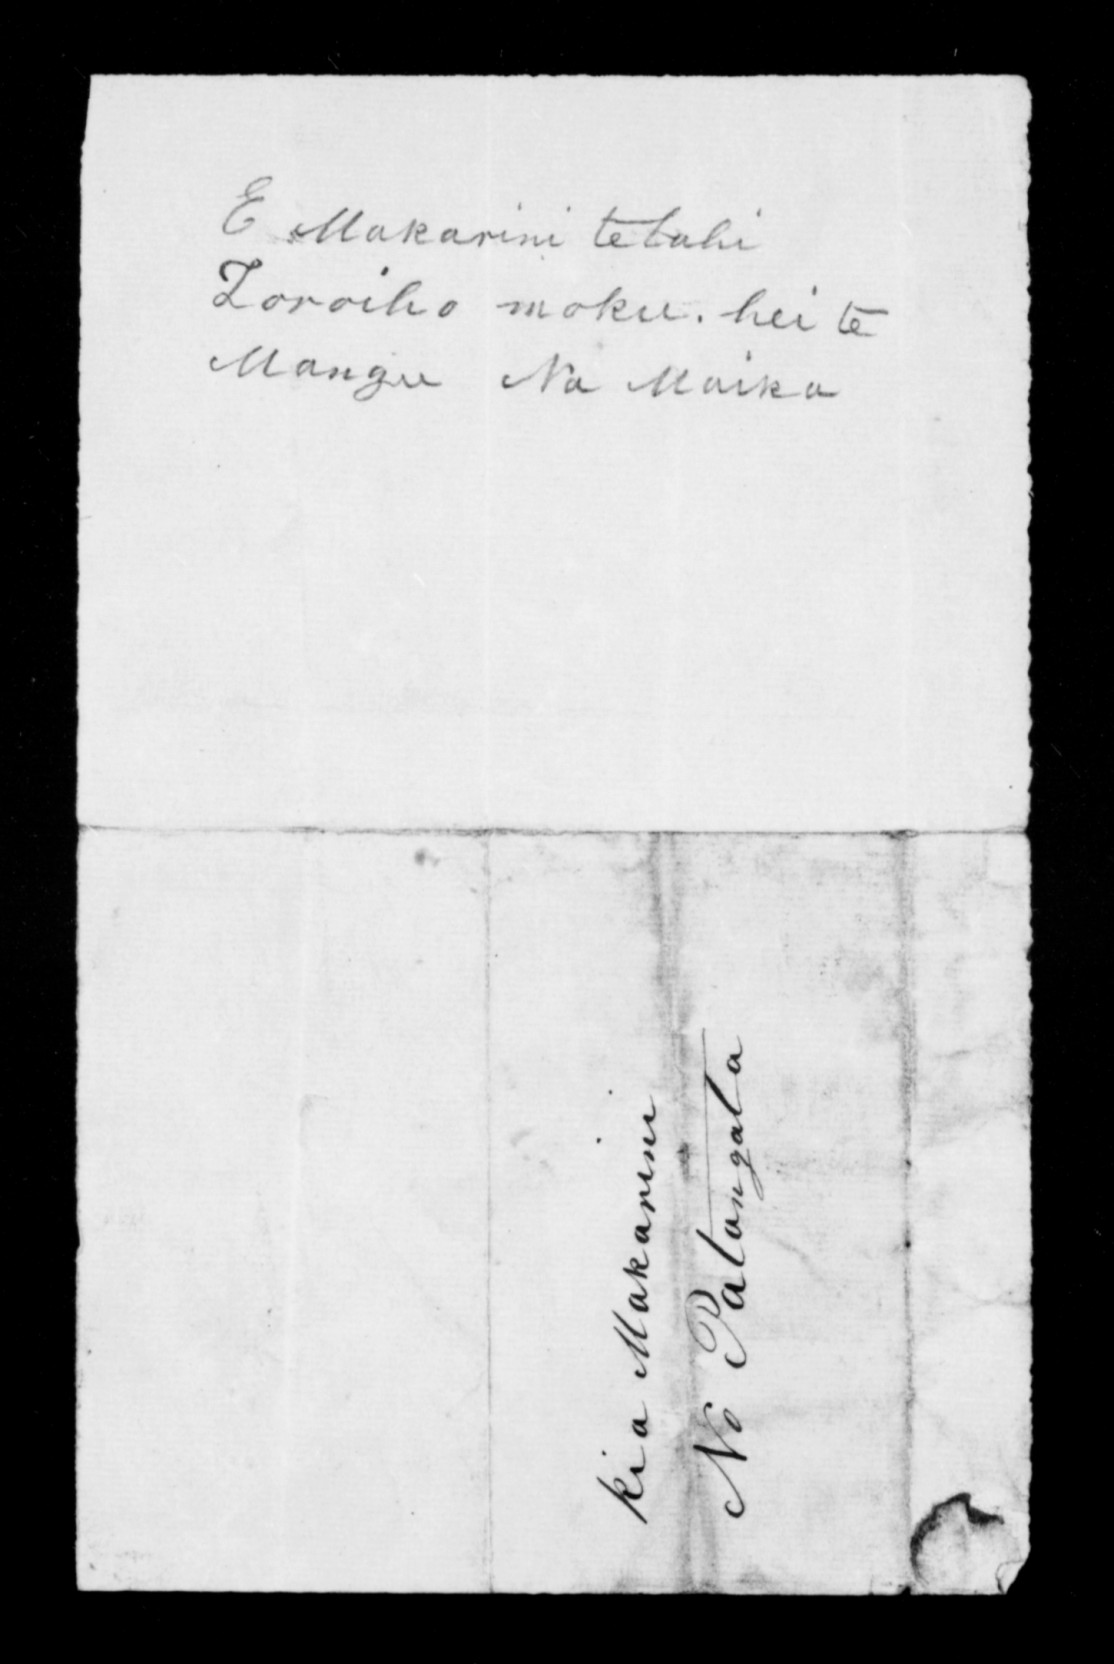 E Makarini tetahi
Toroiho moku. hei te
Mangu Na Maika
kia Makarini
No Patangata